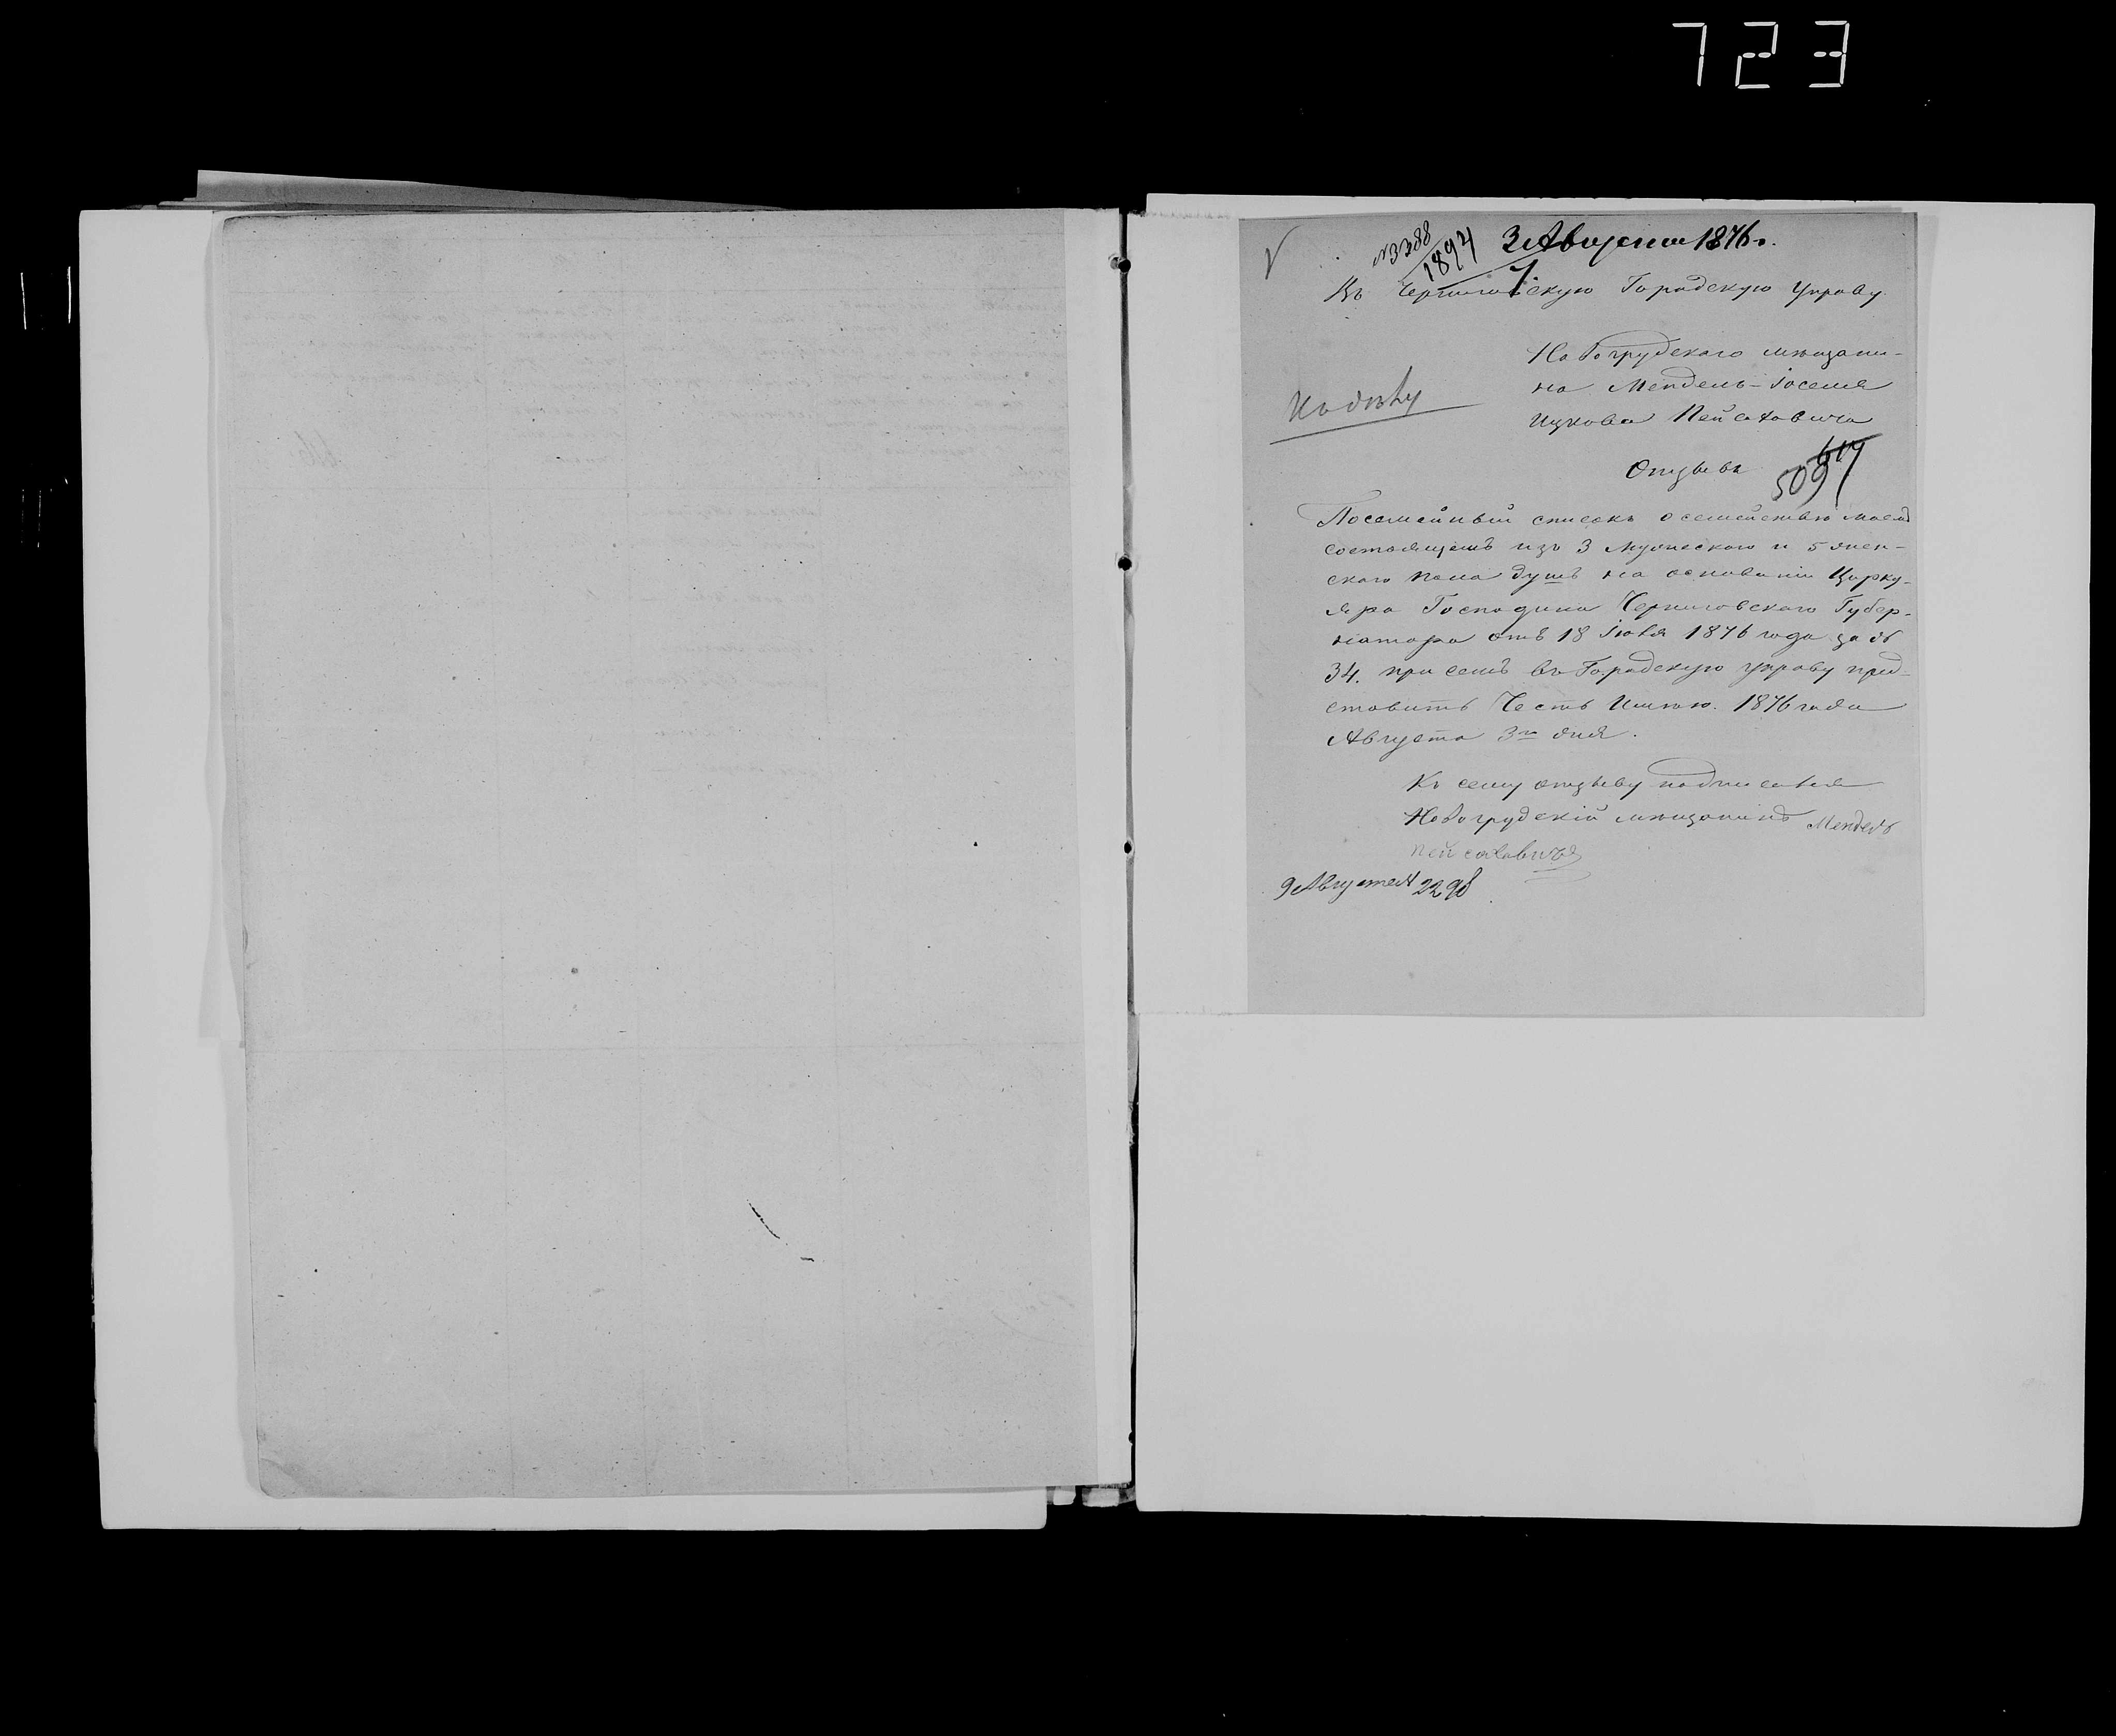 723
№3388
1894
3 Августа 1876 г.
Въ Черниговскую Городскую Управу
Новогрудскаго мѣщани-
на Мендель-Іоселя
Ицкова Пейсаховича
Къ дѣлу
Отзывъ
509
Посемейный списокъ о семействѣ моемъ
состоящемъ изъ 3 мужескаго и 5 жен-
скаго пола душъ на основаніи Цирку-
ляра Господина Черниговскаго Губер-
натора отъ 18 Іюля 1876 года за №
34. при семъ въ Городскую управу пред-
ставить Честь Имѣю. 1876 года
Августа 3го дня.
Къ сему отзыву подписался
Новогрудскій мѣщанинъ Мендель
Пейсаховичъ
9 Августа № 2298